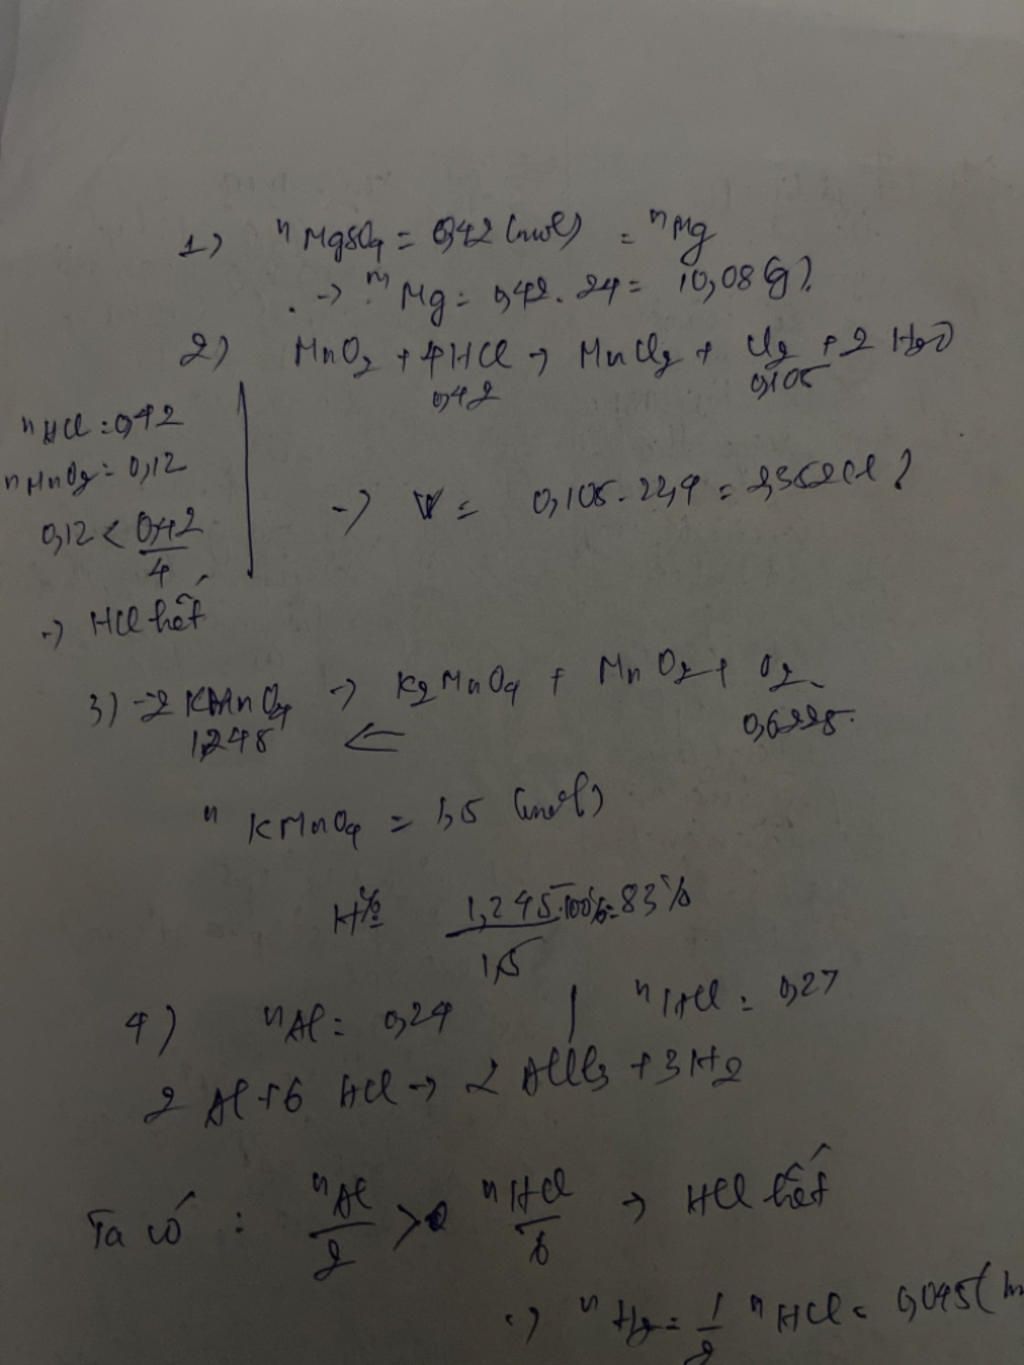 1) nMgSO4 = 0,42 (mol) = nMg
-> mMg = 0,42 . 24 = 10,08 (g).
2) MnO2 + 4HCl -> MnCl2 + Cl2 + 2 H2O
0,42 0,105
nHCl = 0,42
nMnO2 = 0,12
0,12 < 0,42/4
-> HCl hết
-> V = 0,105 . 22,4 = 2,352 (l)
3) 2 KMnO4 -> K2MnO4 + MnO2 + O2
1,245 <= 0,6225
nKMnO4 = 1,5 (mol)
H% = 1,245/1,5 .100% = 83%
4) nAl = 0,24 | nHCl = 0,27
2 Al + 6 HCl -> 2 AlCl3 + 3 H2
Ta có : nAl/2 > nHCl/6 -> HCl hết
-> nH2 = 1/2 nHCl = 0,045 (m